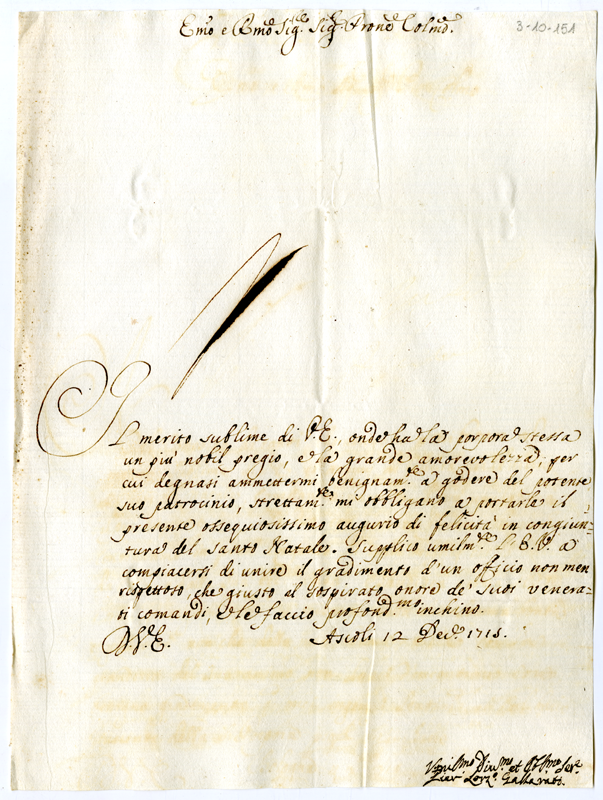 Em̃o e Rmo Sig.re Sig.re Prone Colmo.
3-10-151
Il merito sublime di V.E., onde ha la porpora stessa
un più nobil pregio, e la grande amorevolezza, per
cui degnasi ammettermi benignam.te a godere del potente
suo patrocinio, strettam.te mi obbligano a portarle il
presente ossequiosissimo augurio di felicità in congiun-
tura del Santo Natale. Supplico umilm.te L'E.V. a
compiacersi di unire il gradimento d'un officio non men
rispettoso, che giusto al sospirato onore de' suoi venera-
ti comandi, e le faccio profond.mo inchino.
D. V. E. Ascoli 12 Dec.e 1715.
Umil.mo Div.mo et Obl.mo Ser.e
Gallarati